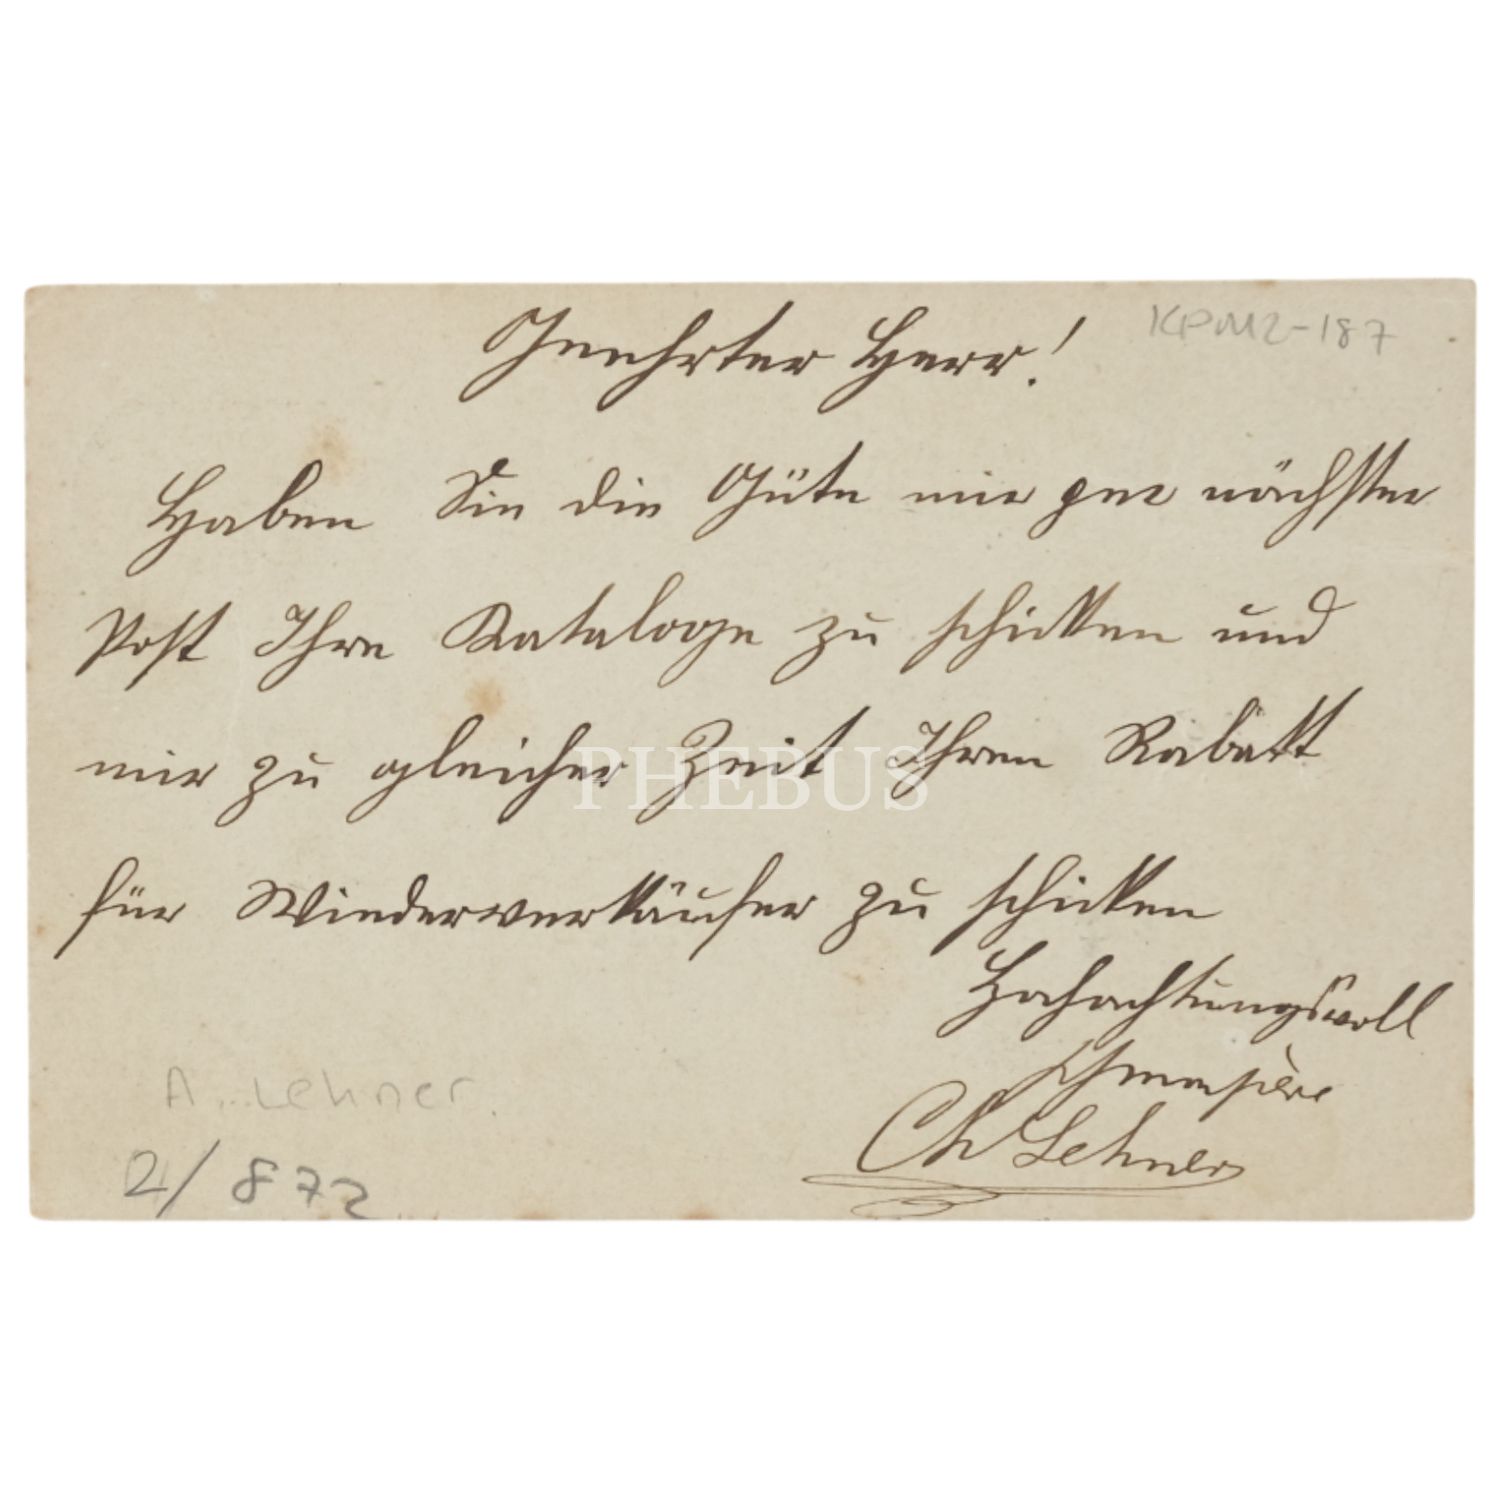 Geehrter Herr!
KPM2-187
Haben Sie die Güte mir per nächster
Post Ihre Kataloge zu schicken und
mir zu gleicher Zeit Ihren Rabatt
PHEBUS
für Wiederverkäufer zu schicken
Hochachtungsvoll
Ch Lehner
A... Lehner.
2/872